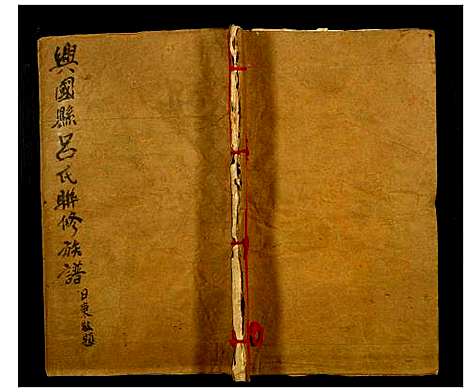 興國縣呂氏聯修族譜
日東敬題